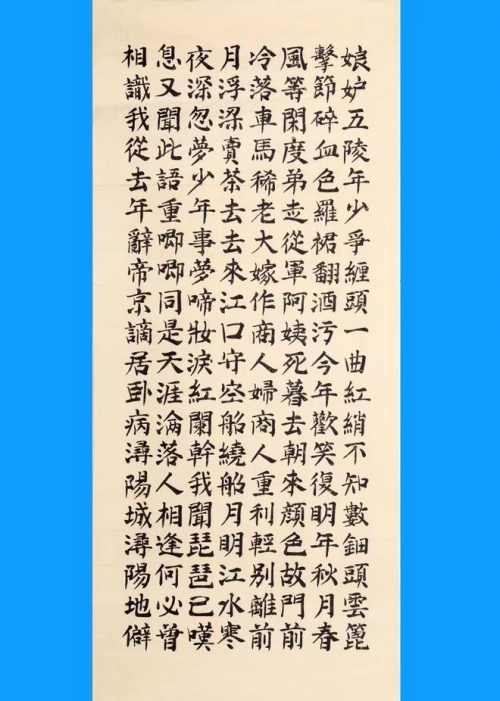 娘妒五陵年少爭纏頭一曲紅綃不知數鈿頭雲篦
擊節碎血色羅裙翻酒污今年歡笑復明年秋月春
風等閑度弟走從軍阿姨死暮去朝來顏色故門前
冷落車馬稀老大嫁作商人婦商人重利輕別離前
月浮梁賣茶去去來江口守空船繞船月明江水寒
夜深忽夢少年事夢啼妝淚紅闌幹我聞琵琶已嘆
息又聞此語重唧唧同是天涯淪落人相逢何必曾
相識我從去年辭帝京謫居臥病潯陽城潯陽地僻